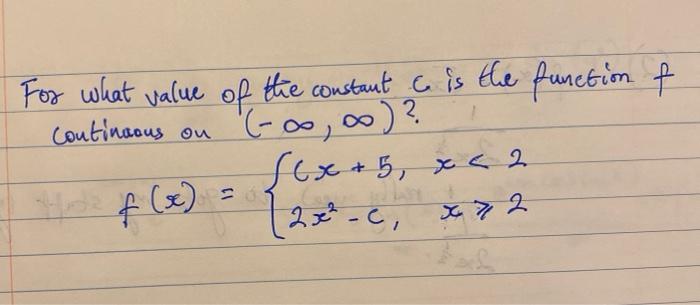 For what value of the constant c is the function f
continuous on (-∞, ∞)?
f(x) = { cx + 5, x < 2
2x² - c, x ⩾ 2